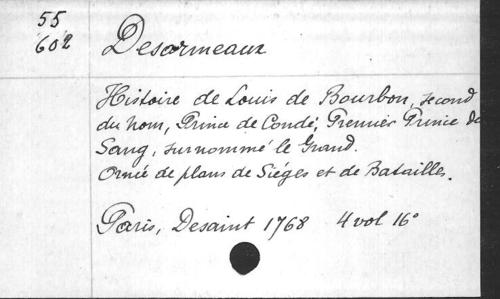 55
602
Desormeaux
Histoire de Louis de Bourbon, second
du nom, Prince de Condé, Premier Prince du
Sang, surnommé le Grand.
Ornée de plans de Siéges et de Batailles.
Paris, Desaint 1768 4 vol 16°